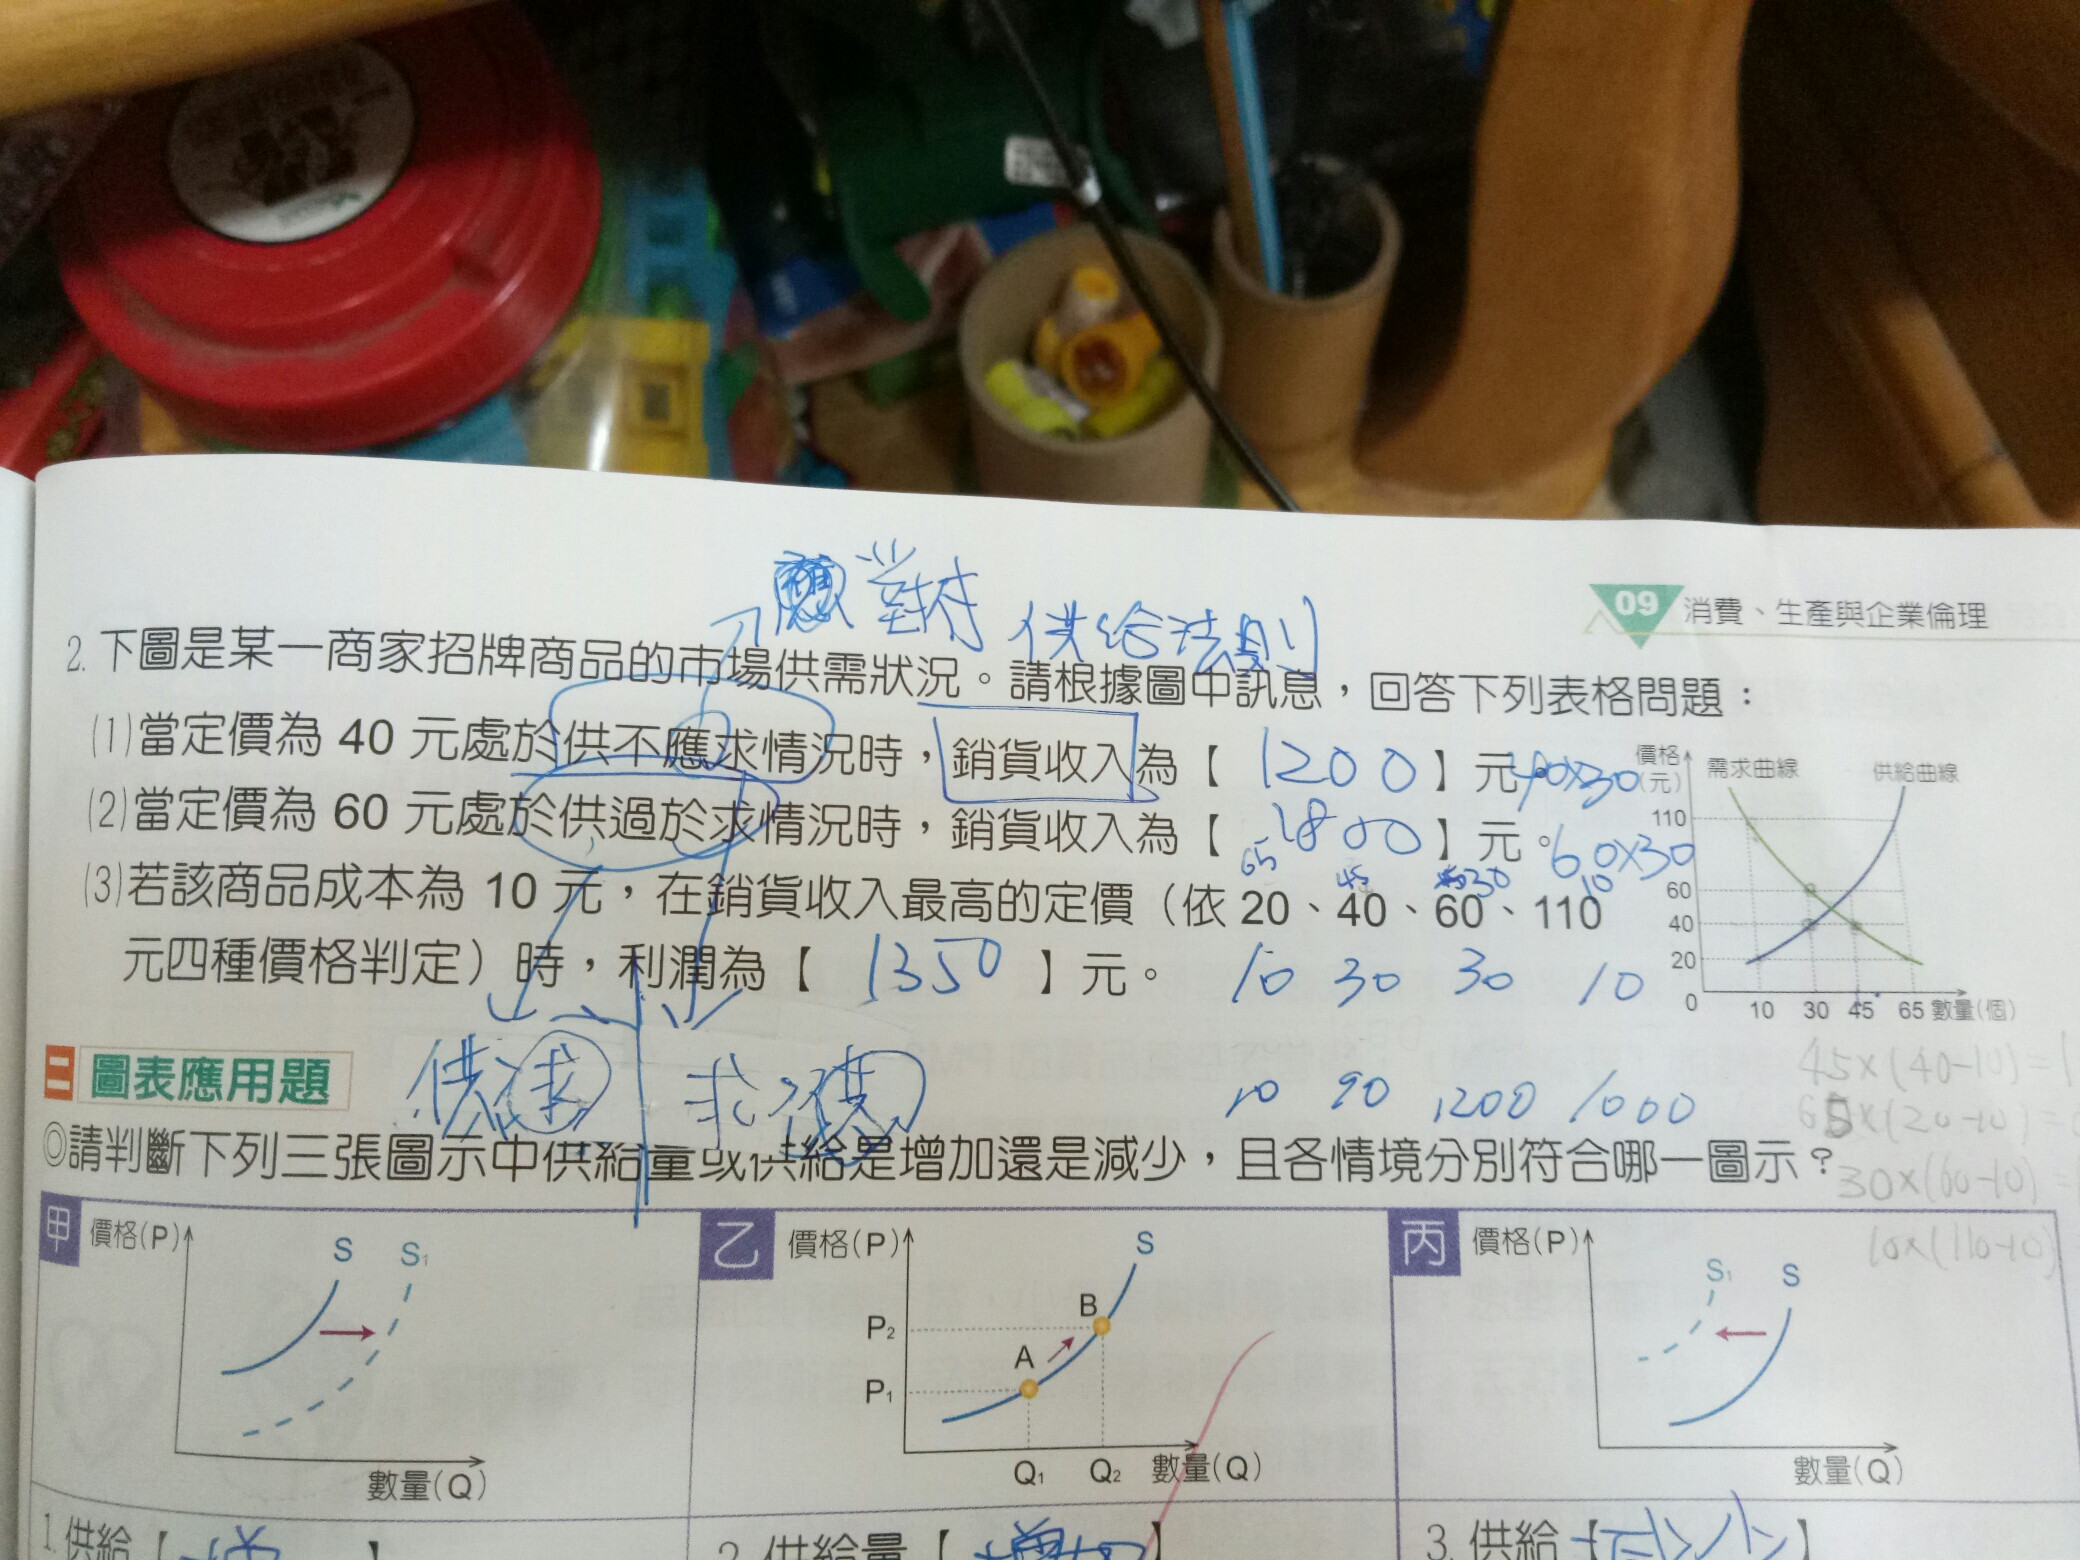 對付 供給法則
09 消費、生產與企業倫理
2. 下圖是某一商家招牌商品的市場供需狀況。請根據圖中訊息，回答下列表格問題：
(1)當定價為 40 元處於供不應求情況時，銷貨收入為【 1200 】元。 40×30
(2)當定價為 60 元處於供過於求情況時，銷貨收入為【 1800 】元。 60×30
65 45 30 10
(3)若該商品成本為 10 元，在銷貨收入最高的定價（依 20、40、60、110
元四種價格判定）時，利潤為【 1350 】元。 10 30 30 10
價格(元) 需求曲線 供給曲線
110
60
40
20
0 10 30 45 65 數量(個)
供>求 求>供
10 90 1200 1000
45×(40-10)=1
65×(20-10)=
30×(60-10)=
10×(110-10)
二 圖表應用題
◎請判斷下列三張圖示中供給量或供給是增加還是減少，且各情境分別符合哪一圖示？
甲 價格(P) S S₁ 數量(Q)
乙 價格(P) S B A P₂ P₁ Q₁ Q₂ 數量(Q)
丙 價格(P) S₁ S 數量(Q)
1. 供給【 增 】
2. 供給量【 增加 】
3. 供給【 減少 】